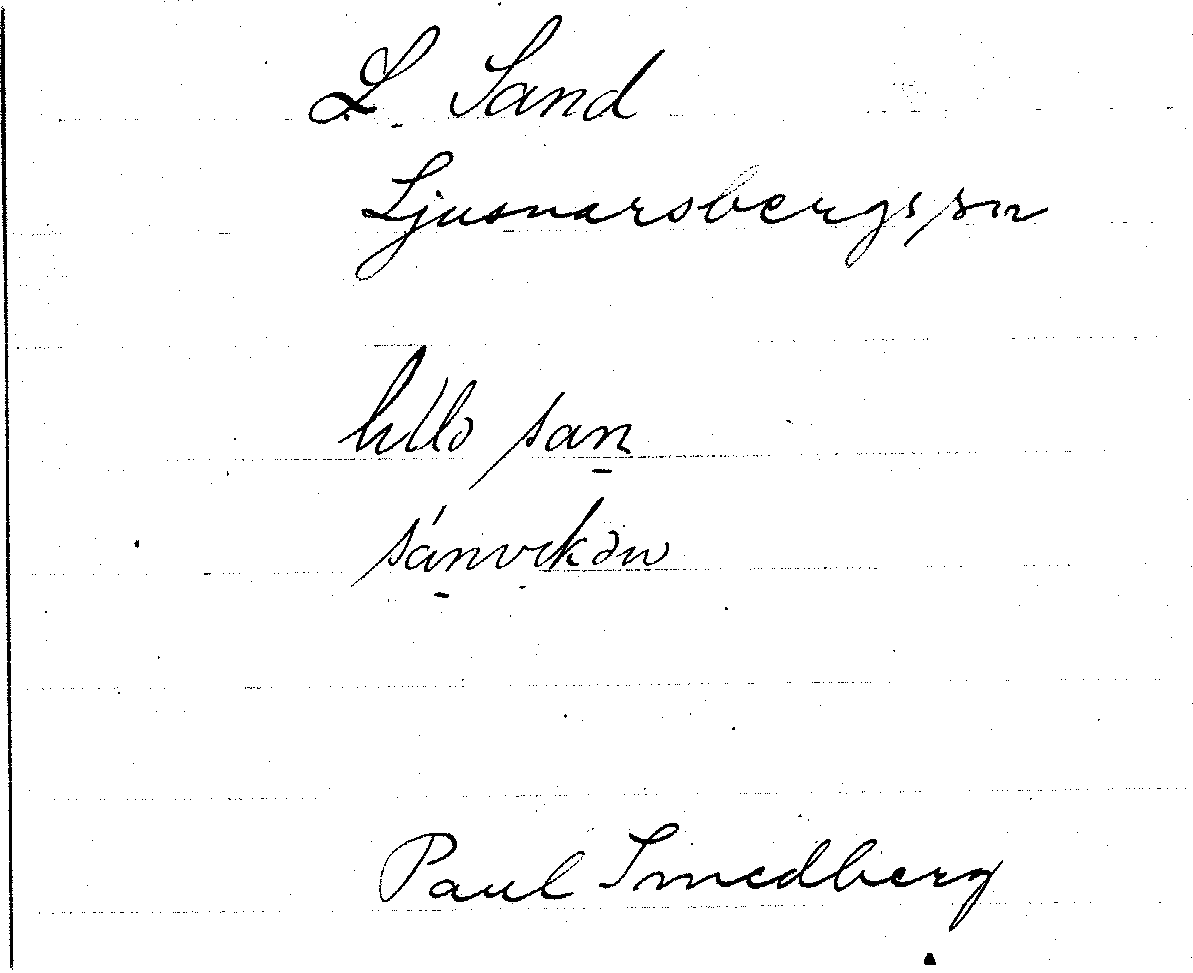 L. Sand
Ljusnarsbergs sn
lillə san
sánvikən
Paul Smedberg